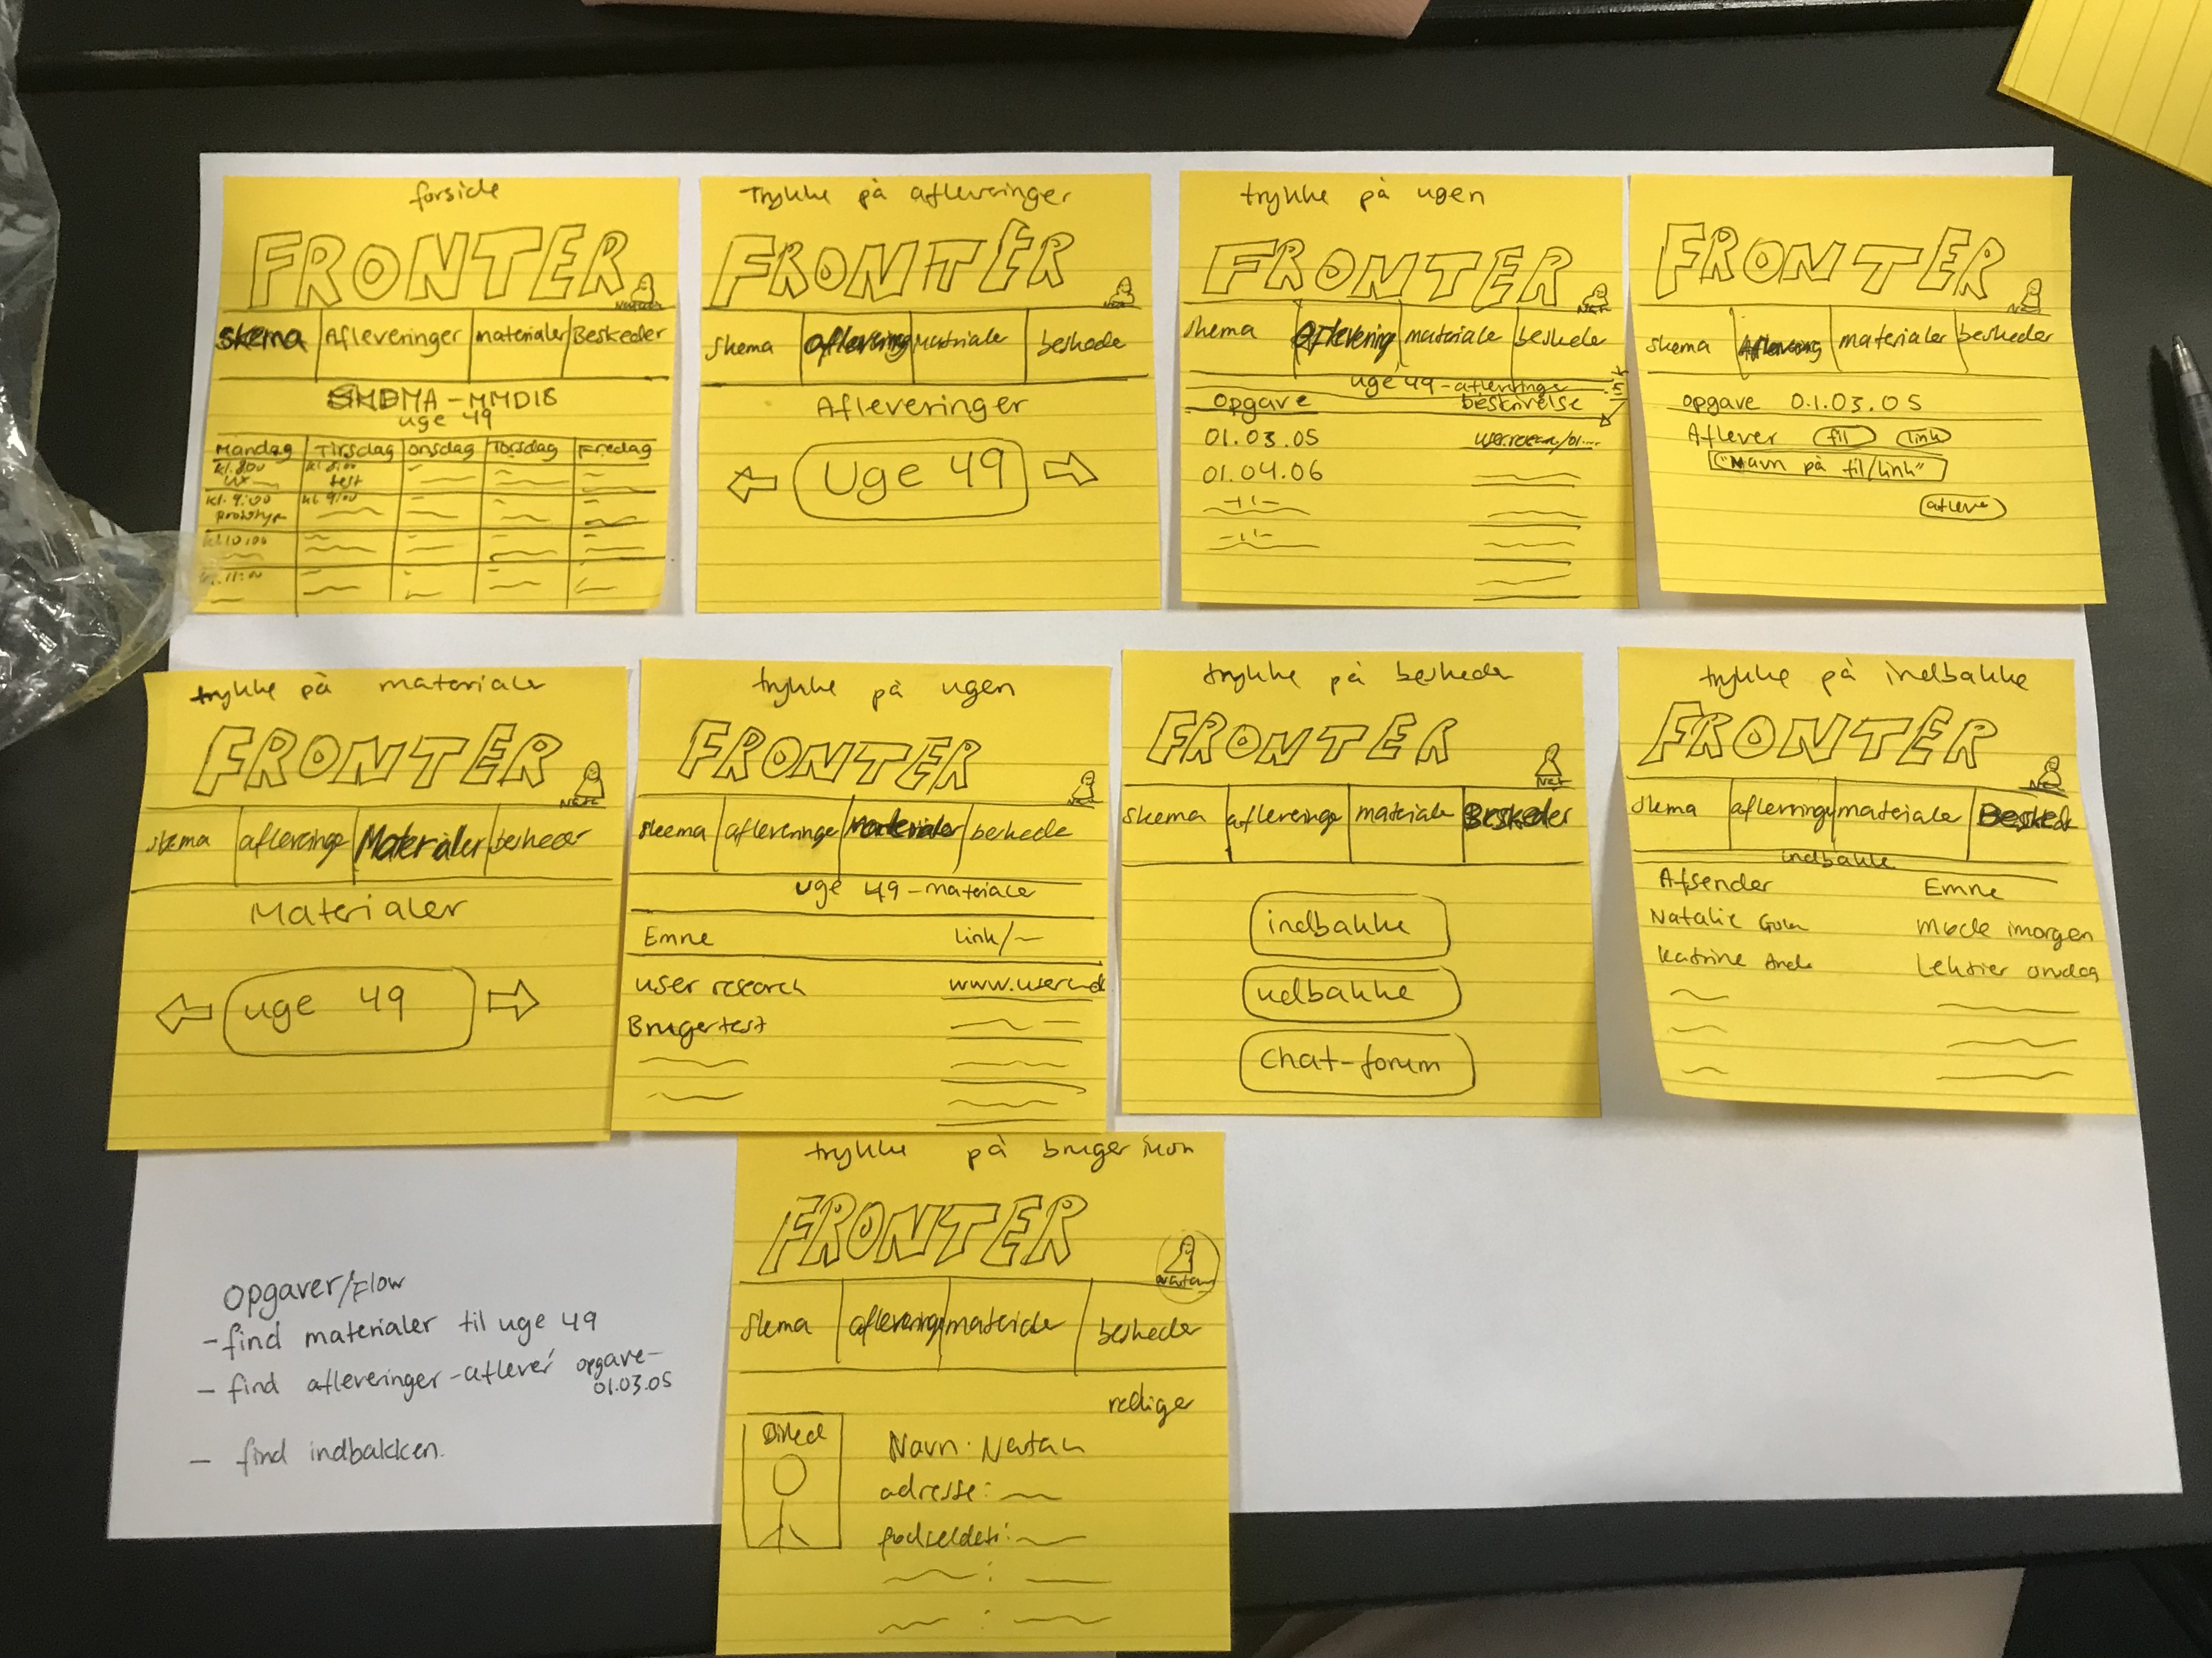 forside
FRONTER
skema Afleveringer materialer Beskeder
MA - MMD18
uge 49
Mandag Tirsdag onsdag Torsdag Fredag
kl. 8:00 kl. 8:00
UX test
kl. 9:00 kl 9:00
prototype
kl. 10:00
kl. 11:00
Trykke på afleveringer
FRONTER
skema aflevering materiale beskede
Afleveringer
Uge 49
trykke på ugen
FRONTER
skema Aflevering materiale beskeder
uge 49 - afleveringe
opgave beskrivelse
01.03.05
01.04.06
FRONTER
skema Aflevering materialer beskeder
opgave 01.03.05
Aflever fil link
"Navn på fil/link"
aflever
trykke på materialer
FRONTER
skema afleveringe Materialer beskeder
Materialer
uge 49
trykke på ugen
FRONTER
skema afleveringe materialer beskede
uge 49 - materiale
Emne Link/~
user research
Brugertest
trykke på beskeder
FRONTER
skema afleveringe materiale Beskeder
indbakke
udbakke
Chat-forum
trykke på indbakke
FRONTER
skema afleveringe materialer Besked
indbakke
Afsender Emne
Natalie møde imorgen
Katrine Lektier onsdag
trykke på bruger ikon
FRONTER
skema afleveringe materialer beskeder
rediger
Billed
Navn: Natali
adresse:
fødselsdato:
Opgaver/Flow
- find materialer til uge 49
- find afleveringer - aflever opgave -
01.03.05
- find indbakken.